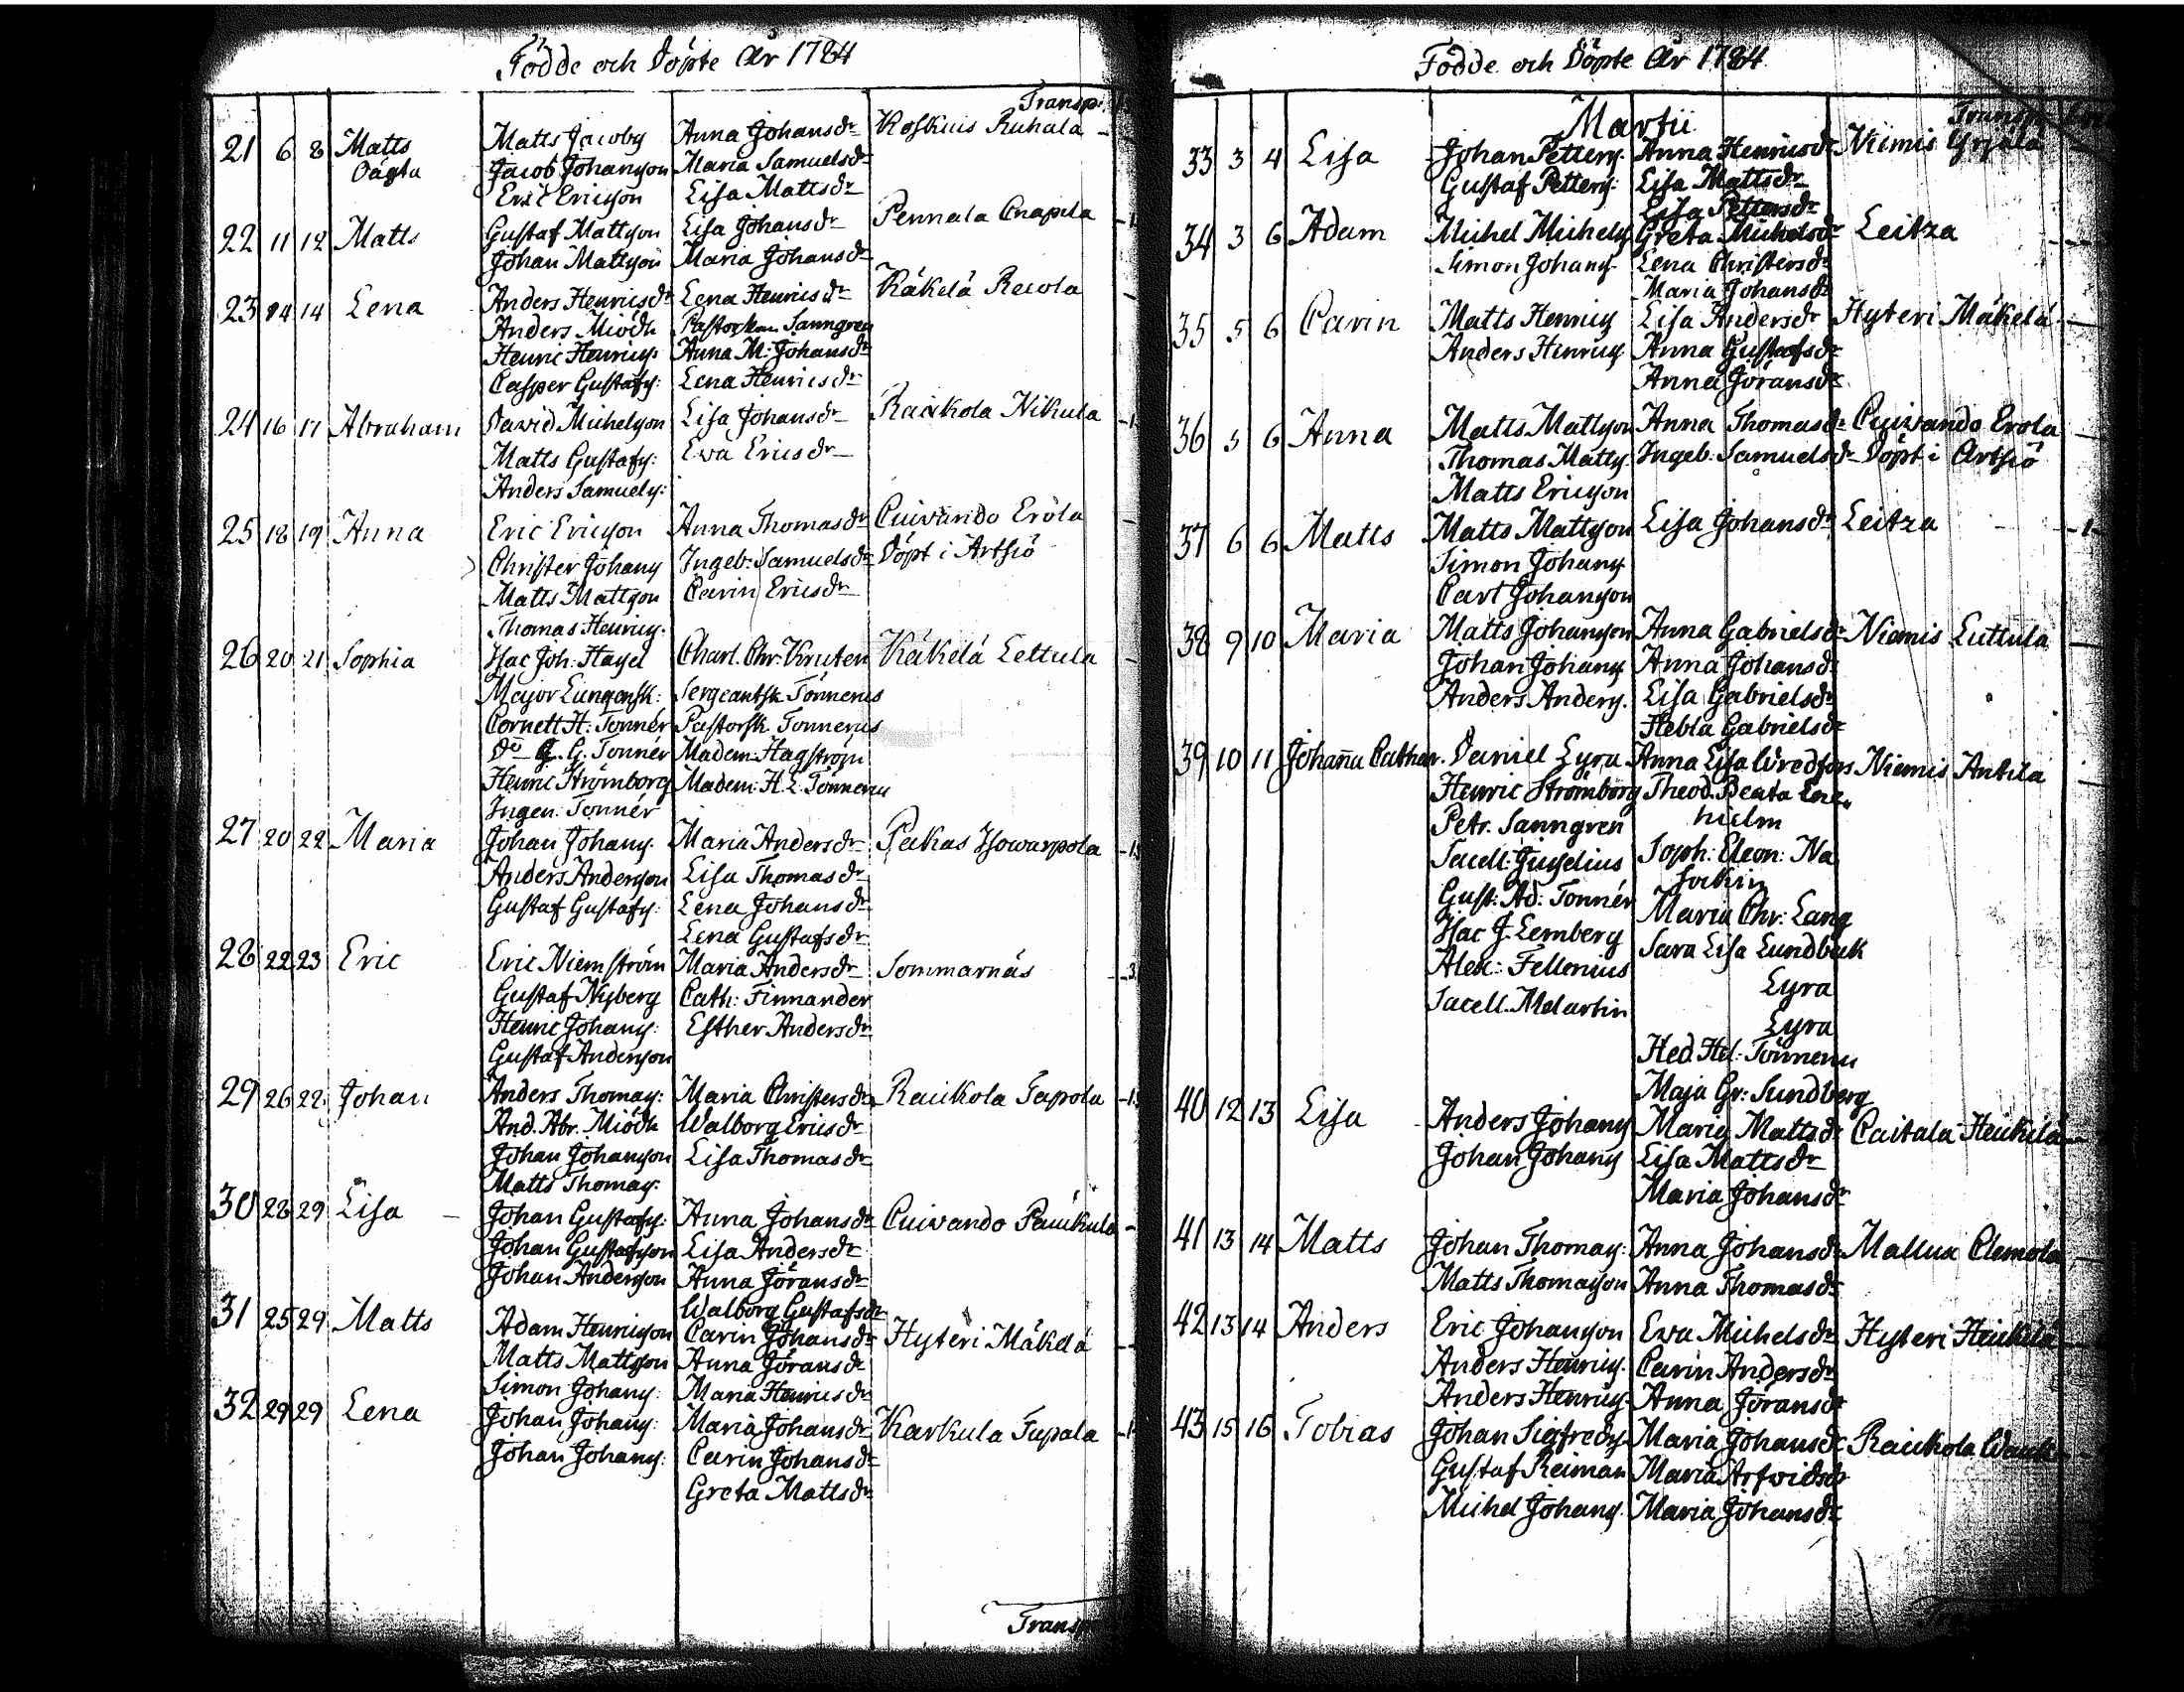 Födde och Döpte År 1784
Transp.
21 6 8 Matts Matts Jacobs Anna Johansdr Koskuis Ruhala
Oägta Jacob Johansson Maria Samuelsdr
Eric Ericsson Lisa Mattsdr
22 11 12 Matts Gustaf Mattsson Lisa Johansdr Pennala
Johan Mattsson Maria Johansdr
23 14 14 Lena Anders Henricsdr Lena Henricsdr Käkelä Recola
Anders Miödh Pastorskan Sanngren
Henric Henrics: Anna M: Johansdr
Casper Gustafs: Lena Henricsdr
24 16 17 Abraham David Michelsson Lisa Johansdr Raukola Nikula
Matts Gustafs: Ewa Ericsdr
Anders Samuels:
25 18 19 Anna Eric Ericsson Anna Thomasdr Cuivando Eröla
Christer Johans Ingeb: Samuelsdr Döpt i Artsiö
Matts Mattsson Carin Ericsdr
Thomas Henrics.
26 20 21 Sophia Isac Joh: Charl. Chr. Kruten Käkelä Lettula
Major Sergeantsk. Tönnerus
Cornett H: Tonnér Pastorsk. Tonnerus
Do G. G. Tonnér Madem: Hagström
Henric Strömborg Madem: H. L. Tönnerus
Ingen. Tonnér
27 20 22 Maria Johan Johans. Maria Andersdr Pakas
Anders Andersson Lisa Thomasdr
Gustaf Gustafs: Lena Johansdr
Lena Gustafsdr
28 22 23 Eric Eric Niemström Maria Andersdr Sommarnäs
Gustaf Nyberg Cath: Finnander
Henric Johans: Esther Andersdr
Gustaf Andersson
29 26 28 Johan Anders Thomas: Maria Christersdr Raukola Tapola
And. Abr. Miödh Walborg Ericsdr
Johan Johansson Lisa Thomasdr
Matts Thomas:
30 28 29 Lisa Johan Gustafs: Anna Johansdr Cuivando
Johan Gustafsson Lisa Andersdr
Johan Andersson Anna Jöransdr
Walborg Gustafsdr
31 25 29 Matts Adam Henricsson Carin Johansdr Hyteri Mäkelä
Matts Mattsson Anna Jöransdr
Simon Johans: Maria Henricsdr
32 29 29 Lena Johan Johans: Maria Johansdr Karkula Tupala
Johan Johans: Carin Johansdr
Greta Mattsdr
Transp
Födde och Döpte År 1784
Transp
Martii
33 3 4 Lisa Johan Petters. Anna Henricsdr Niemis Yrjälä
Gustaf Petters: Lisa Mattsdr
Lisa Pettersdr
34 3 6 Adam Michel Michels Greta Michelsdr Leitza
Simon Johans. Lena Christersdr
Maria Johansdr
35 5 6 Carin Matts Henrics Lisa Andersdr Hyteri Mäkelä
Anders Henrics Anna Gustafsdr
Anna Jöransdr
36 5 6 Anna Matts Mattsson Anna Thomasdr Cuivando Erola
Thomas Matts. Ingeb: Samuelsdr Döpt i Artsiö
Matts Ericsson
37 6 6 Matts Matts Mattsson Lisa Johansdr Leitza
Simon Johans
Carl Johansson
38 9 10 Maria Matts Johansson Anna Gabrielsdr Niemis Luttula
Johan Johans Anna Johansdr
Anders Anders. Lisa Gabrielsdr
Hebla Gabrielsdr
39 10 11 Johanna Cathar. Daniel Lyra Anna Lisa Wredfors Niemis Antila
Henric Strömborg Theod. Beata
hielm
Petr. Sanngren
Sacell: Soph: Eleon: Na
sokin
Gust: Ad: Tonnér Maria Chr: Lang
Isac J. Lemberg Sara Lisa Lundbuk
Alex: Fellenius Lyra
Sacell. Melartin Lyra
Hed. Hel: Tönnerus
Maja Gr: Sundberg
40 12 13 Lisa Anders Johans Maria Mattsdr Caitala Heickilä
Johan Johans Lisa Mattsdr
Maria Johansdr
41 13 14 Matts Johan Thomas: Anna Johansdr Mallux Clemola
Matts Thomasson Anna Thomasdr
42 13 14 Anders Eric Johansson Ewa Michelsdr Hyteri Heickilä
Anders Henrics. Carin Andersdr
Anders Henrics. Anna Jöransdr
43 15 16 Tobias Johan Sigfreds Maria Johansdr Raukola
Gustaf Reiman Maria Arfwidsdr
Michel Johans. Maria Johansdr